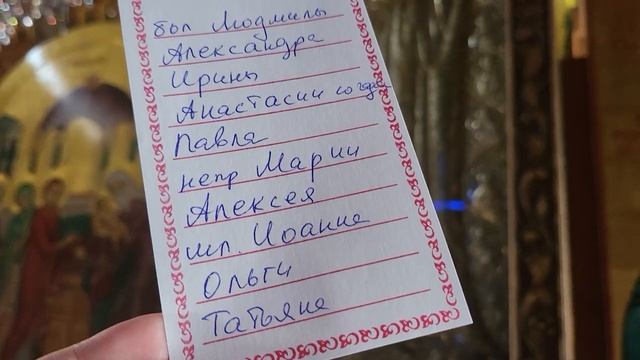 бол Людмилы
Александра
Ирины
Анастасии со чадо
Павла
непр Марии
Алексея
мл. Иоанна
Ольги
Татьяна